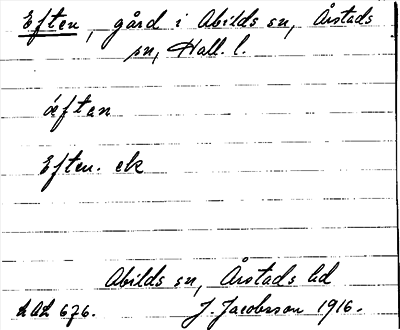 Eften, gård i Abilds sn, Årstads
sn, Hall. l.
æftan
Eften. ek
Abilds sn, Årstads hd
LAL 676.
J. Jacobsson 1916.